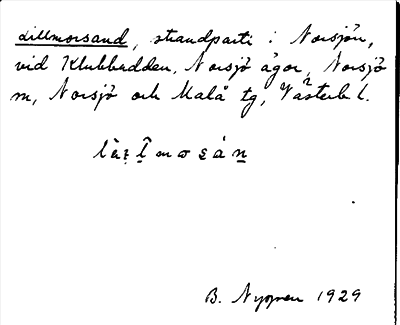 Lillmorsand, strandparti i Norsjön,
vid Klubbudden, Norsjö ägor, Norsjö
sn, Norsjö och Malå tg, Västerb. l.
B. Nygren 1929